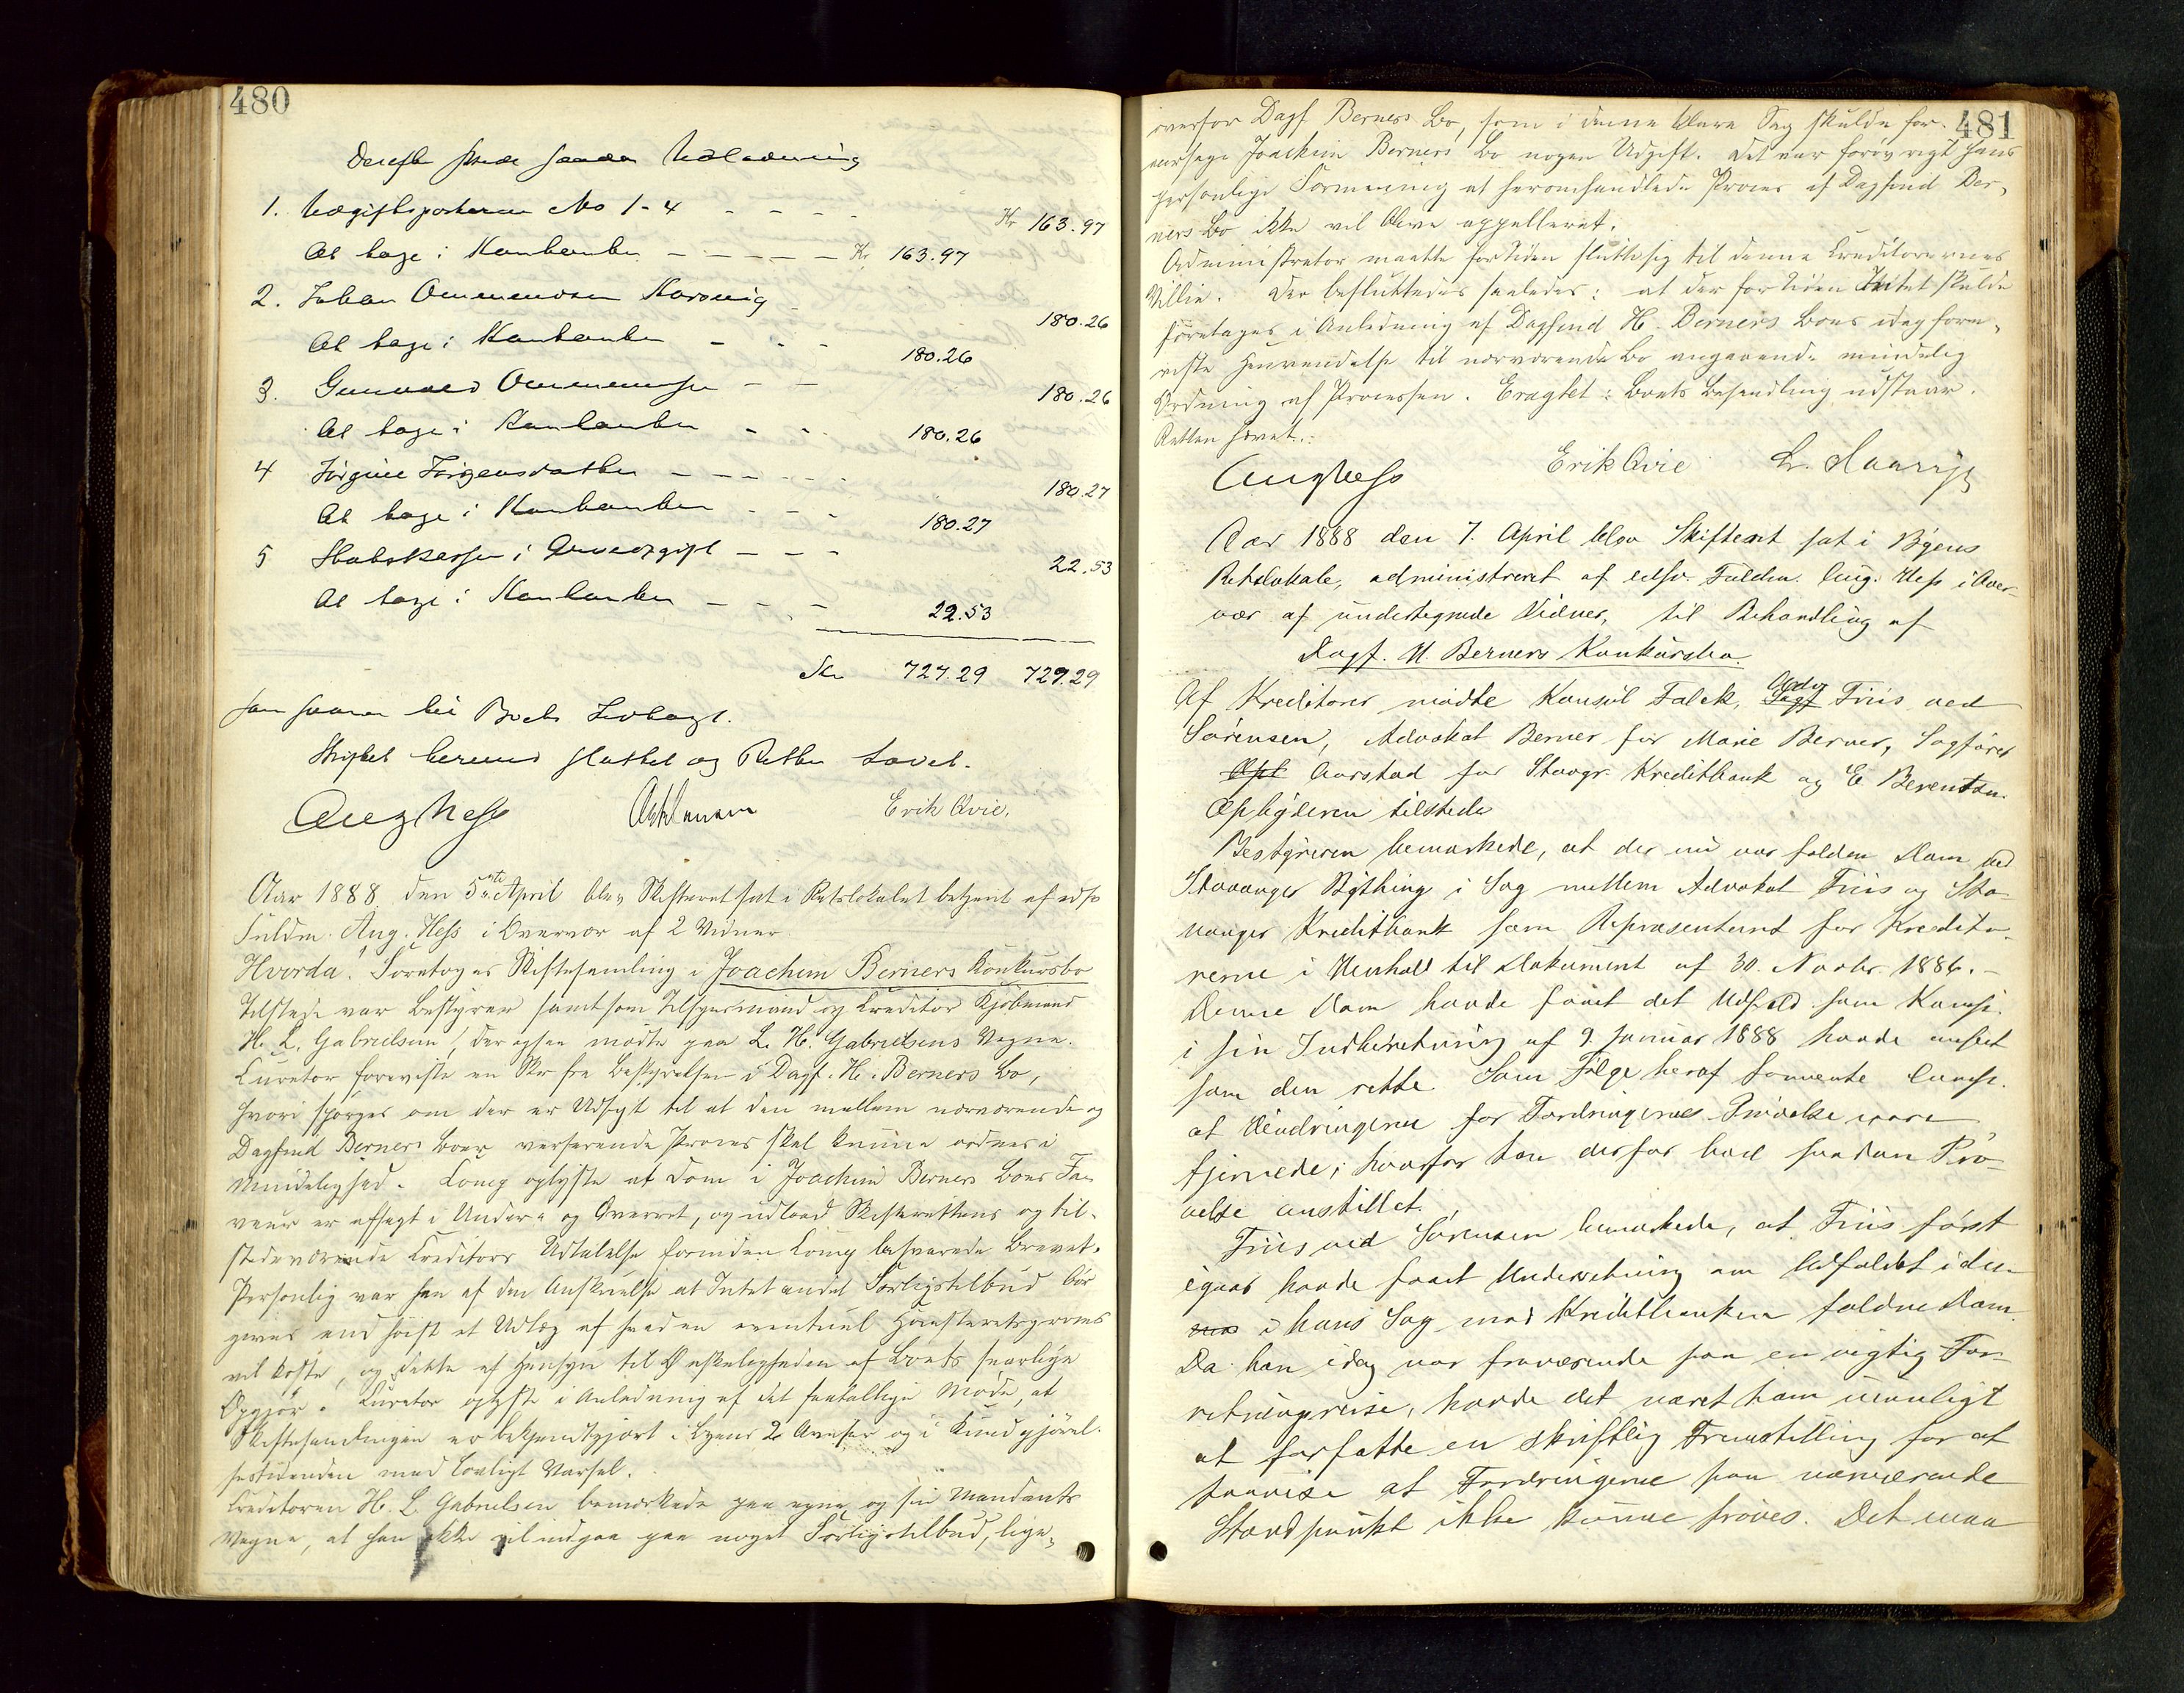 480
Derefter skede saadan Udlodning
1. Udgiftsposterne No 1-4 - - - - Kr 163.97
At tage i Kontanter - - - - - Kr 163.97
2. Johan Ommundsen 180.26
At tage i Kontanter - - - 180.26
3. Gunvald Ommundsen - - 180.26
At tage i Kontanter - - - 180.26
4 Jörgine Jörgensdatter - - - - - 180.27
At tage i Kontanter - - - 180.27
5 Statskassen i Arveafgift - - - 22.53
At tage i Kontanter - - - 22.53
Kr 727.29 727.29
som svarer til Boets Indtægt.
Skiftet hermed sluttet og Retten hævet.
Aug Hess Erik Qvie.
Aar 1888 den 5te April blev Skifteret sat i Retslokalet betjent af edsv
Fuldm. Aug. Hess i Overvær af 2 Vidner.
Hvorda! Foretoges Skiftesamling i Joachim Berners Konkursbo
Tilstede var Bestyrer samt som Tilsynsmand og Creditor Kjöbmand
H. L. Gabrielsen, der ogsaa mödte paa L. H. Gabrielsens Vegne.
Curator foreviste en Skr fra Bestyrelsen i Dagf. H. Berners Bo,
hvori spörges om der er Udsigt til at den mellem nærværende og
Dagfind Berners Boer verserende Proces skal kunne ordnes i
Mindelighed. Comp oplyste at Dom i Joachim Berners Boes Fa-
veur er afsagt i Under- og Overret, og udbad Skifterettens og til-
stedeværende Creditors Udtalelse forinden Comp besvarede Brevet.
Personlig var han af den Anskuelse at Intet andet Forligstilbud bör
gives end höist et Udlæg af hvad en eventuel Höiesteretsproces
vil koste, og dette af Hensyn til Önskeligheden af Boets snarlige
Opgjör. Curator oplyste i Anledning af det faatallige Möde, at
Skiftesamlingen er bekjendtgjort i Byens 2 Aviser og i Kundgjörel-
sestidenden med lovligt Varsel.
Creditoren H. L. Gabrielsen bemærkede paa egne og sin Mandants
Vegne, at han ikke vil indgaa paa noget Forligstilbud, lige-
481
overfor Dagf Berners Bo, som i denne klare Sag skulde for-
aarsage Joachim Berners Bo nogen Udgift. Det var forövrigt hans
personlige Formening at heromhandlede Proces af Dagfind Ber-
ners Bo ikke vil blive appelleret.
Administrator maatte fortiden slutte sig til denne Creditorernes
Villie. Der besluttedes saaledes: at der fortiden Intet skulde
foretages i Anledning af Dagfind H. Berners Boes idag fore-
viste Henvendelse til nærværende Bo angaaende mindelig
Ordning af Processen. Eragtet: Boets Behandling udstaar.
Retten hævet.
Aug Hess Erik Qvie
Aar 1888 den 7. April blev Skifteret sat i Byens
Retslokale, administreret af edsv. Fuldm. Aug. Hess i Over-
vær af undertegnede Vidner, til Behandling af
Dagf. H. Berners Konkursbo.
Af Kreditorer mødte Konsul Falck, Sagf Adv Friis ved
Sörensen, Advokat Berner for Marie Berner, Sagförer
Opl Aarstad for Stavgr. Kreditbank og E Berentsen.
Opbyderen tilstede
Bestyreren bemærkede, at der nu var falden Dom ved
Stavanger Bything i Sag mellem Advokat Friis og Sta-
vanger Kreditbank som Repræsentant for Kredito-
rerne i Henhold til Dokument af 30. Novbr. 1886. -
Denne Dom havde faaet det Udfald som Komp.
i sin Indberetning af 9. Januar 1888 havde anseet
som den rette. Som Fölge heraf formente Comp.
at Hindringerne for Fordringernes Prövelse vare
fjernede; hvorfor han derfor bad saadan Prö-
velse anstillet.
Friis ved Sörensen bemærkede, at Friis först
igaar havde faaet Underretning om Udfaldet i den
i hans Sag mod Kreditbanken faldne Dom.
Da han idag var fraværende paa en vigtig For-
retningsreise, havde det været ham umuligt
at forfatte en skriftlig Fremstilling for at
paavise at Fordringerne paa nærværende
Standpunkt ikke kunne pröves. Det maa